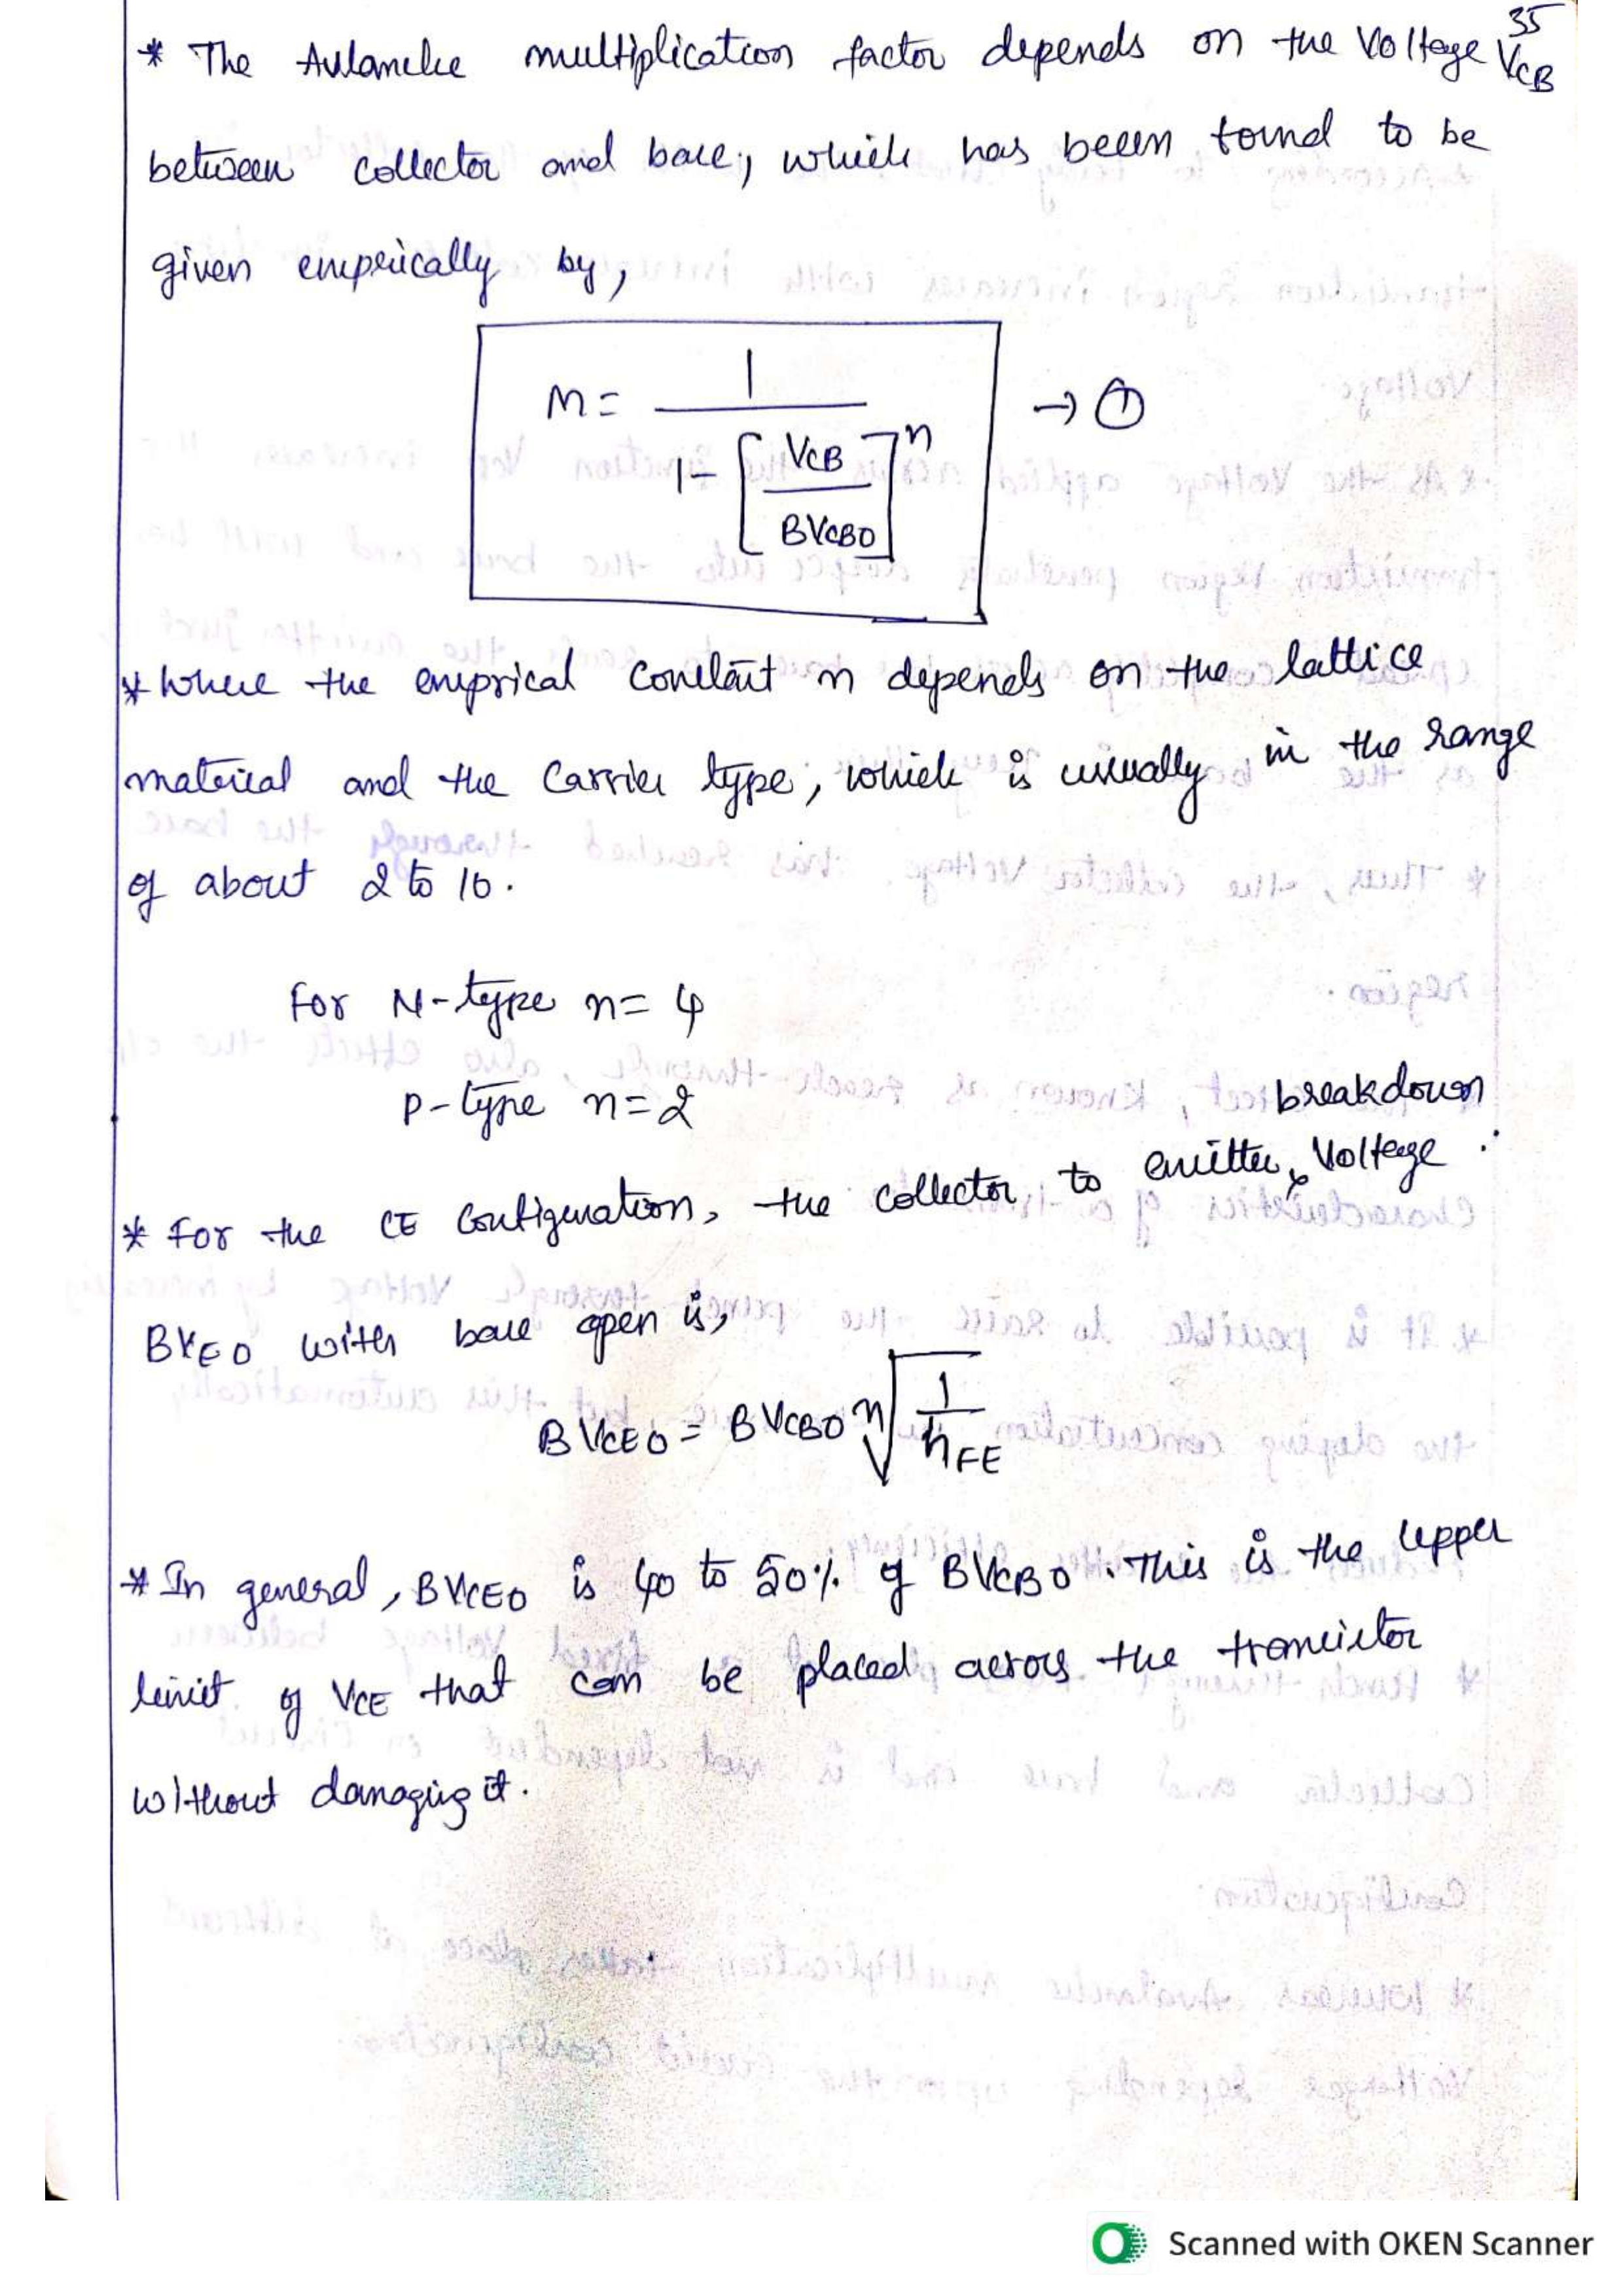 35
* The Avlanche multiplication factor depends on the Voltage VCB
between collector and base, which has been found to be
given emperically by,
M = 1 / 1 - [VCB / BVCBO]^n → ①
* Where the emprical constant n depends on the lattice
material and the Carrier type, which is usually in the range
of about 2 to 10.
For N-type n = 4
P-type n = 2
breakdown
* For the CE Configuration, the collector to emitter Voltage.
BVCEO with base open is,
BVCEO = BVCBO n√(1/hFE)
* In general, BVCEO is 40 to 50% of BVCBO. This is the upper
limit of VCE that can be placed across the transistor
without damaging it.
Scanned with OKEN Scanner